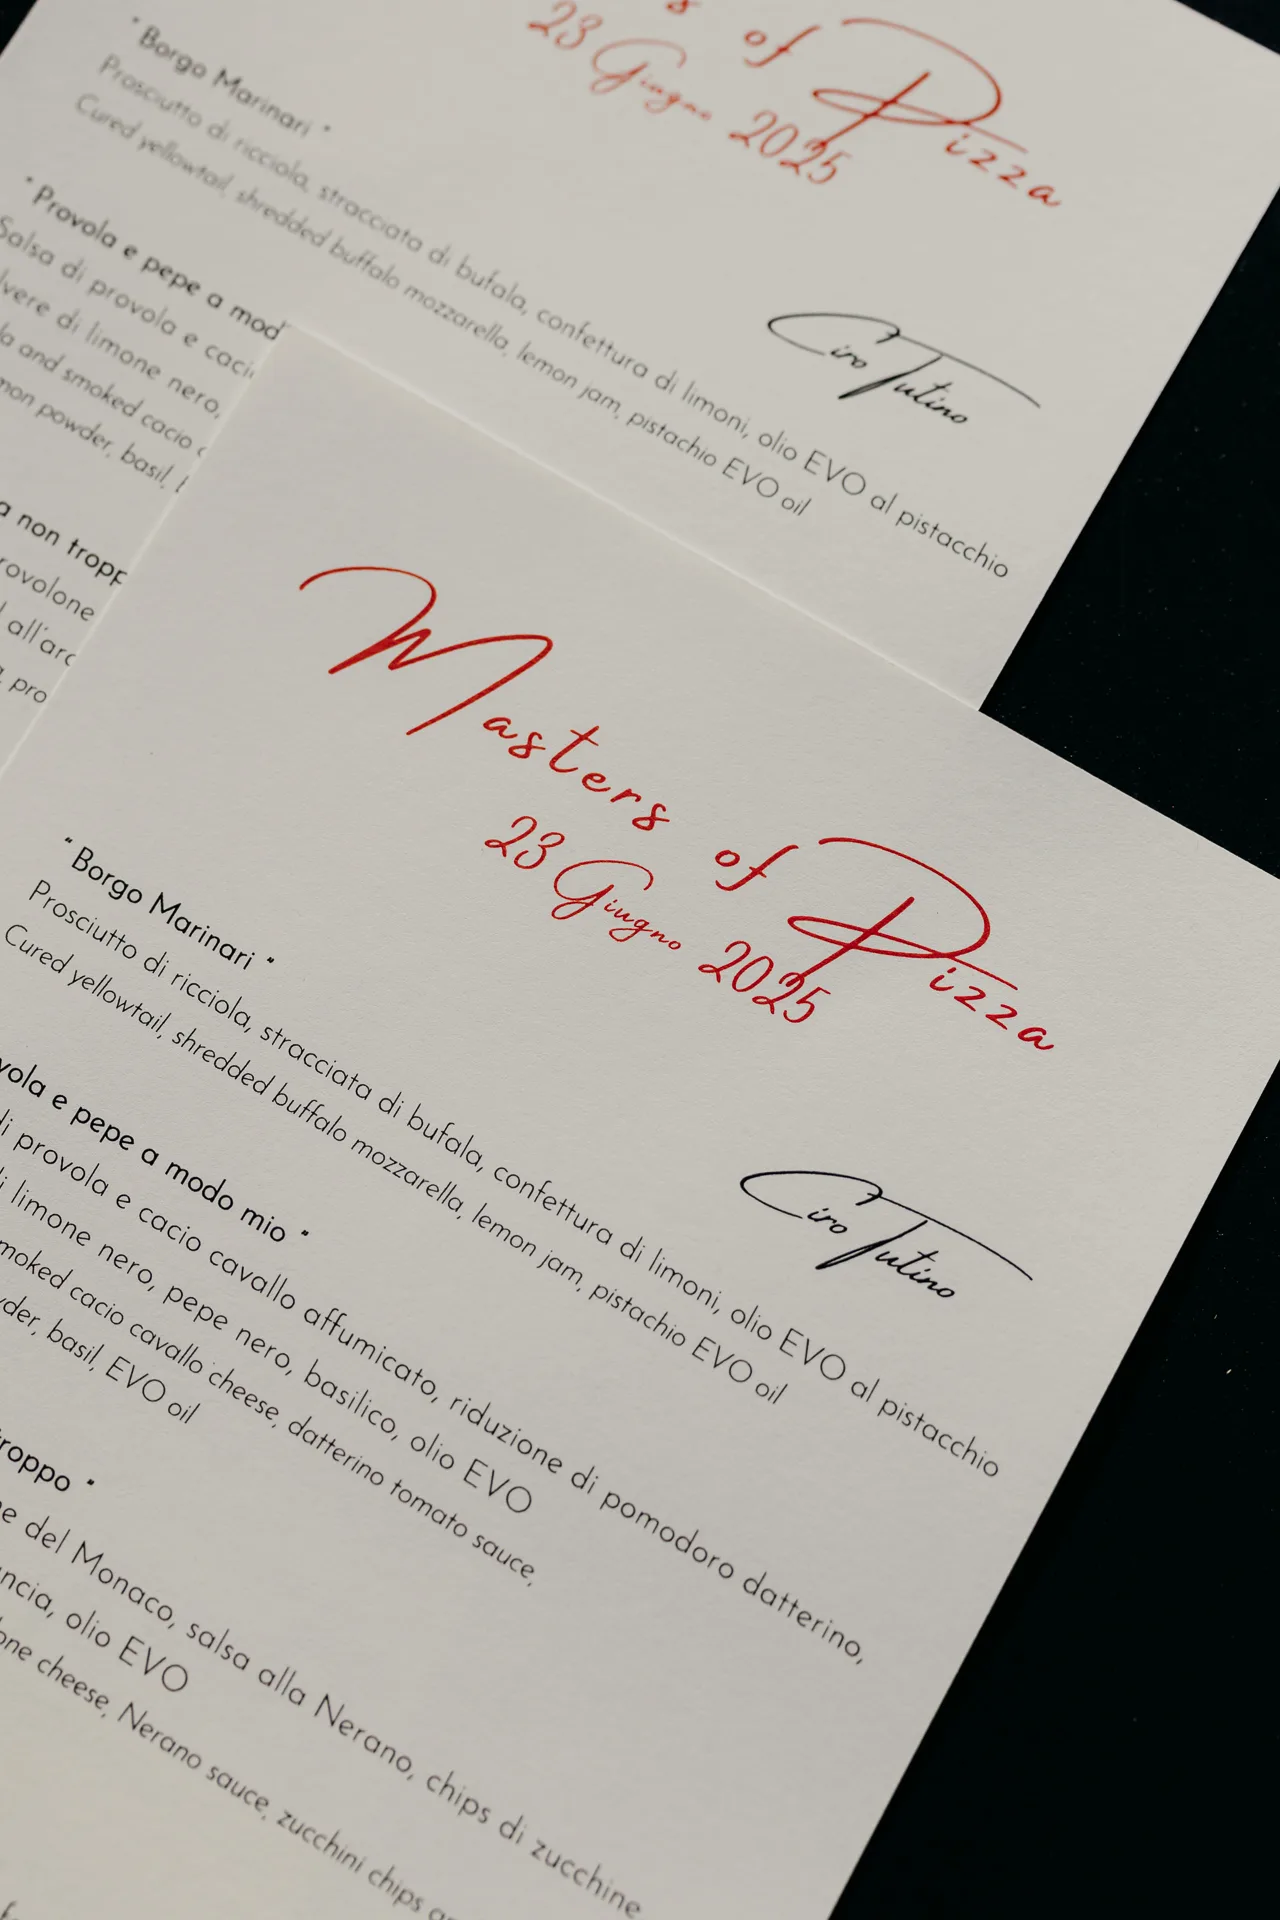 s of Pizza
23 Giugno 2025
" Borgo Marinari "
Prosciutto di ricciola, stracciata di bufala, confettura di limoni, olio EVO al pistacchio
Cured yellowtail, shredded buffalo mozzarella, lemon jam, pistachio EVO oil
Ciro Tutino
" Provola e pepe a mod
Salsa di provola e caci
lvere di limone nero,
la and smoked cacio c
mon powder, basil,
a non tropp
rovolone
l all'arc
pro
Masters of Pizza
23 Giugno 2025
Ciro Tutino
" Borgo Marinari "
Prosciutto di ricciola, stracciata di bufala, confettura di limoni, olio EVO al pistacchio
Cured yellowtail, shredded buffalo mozzarella, lemon jam, pistachio EVO oil
vola e pepe a modo mio "
di provola e cacio cavallo affumicato, riduzione di pomodoro datterino,
di limone nero, pepe nero, basilico, olio EVO
smoked cacio cavallo cheese, datterino tomato sauce,
wder, basil, EVO oil
troppo "
ne del Monaco, salsa alla Nerano, chips di zucchine
ancia, olio EVO
one cheese, Nerano sauce, zucchini chips